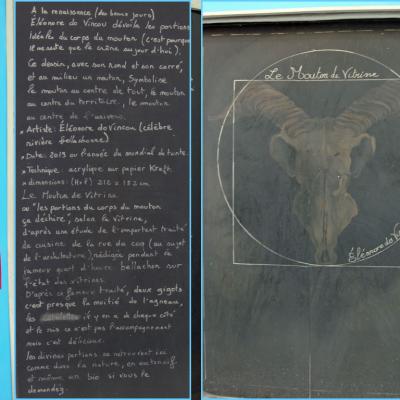 A la renaissance (des beaux jours)
Éléonore do Vincou dévoila les portions
Idéales du corps du mouton (c'est pourquoi
il ne reste que le crâne aujourd'hui).
Ce dessin, avec son rond et son carré,
et au milieu un mouton, symbolise
le mouton au centre de tout, le mouton
au centre du territoire, le mouton
au centre de l'univers.
* Artiste: Éléonore do Vincou (célèbre
rivière bellachonne)
* Date: 2013 ou l'année du mondial de tonte.
* Technique: acrylique sur papier Kraft.
* dimensions: (H x l) 212 x 152 cm.
Le Mouton de Vitrine
ou "les portions du corps du mouton
ça déchire", selon la Vitrine,
d'après une étude de l'important traité
de cuisine de la rue du coq (au sujet
de l'architecture) rédigée pendant le
fameux quart d'heure bellachon sur
l'état des vitrines.
D'après ce fameux traité, deux gigots
c'est presque la moitié de l'agneau,
les il y en a de chaque côté
et le riz ce n'est pas l'accompagnement
mais c'est délicieux.
les divines portions se retrouvent ici
comme dans la nature, en
et même en bio si vous le
demandez.
Le Mouton de Vitrine
Éléonore do